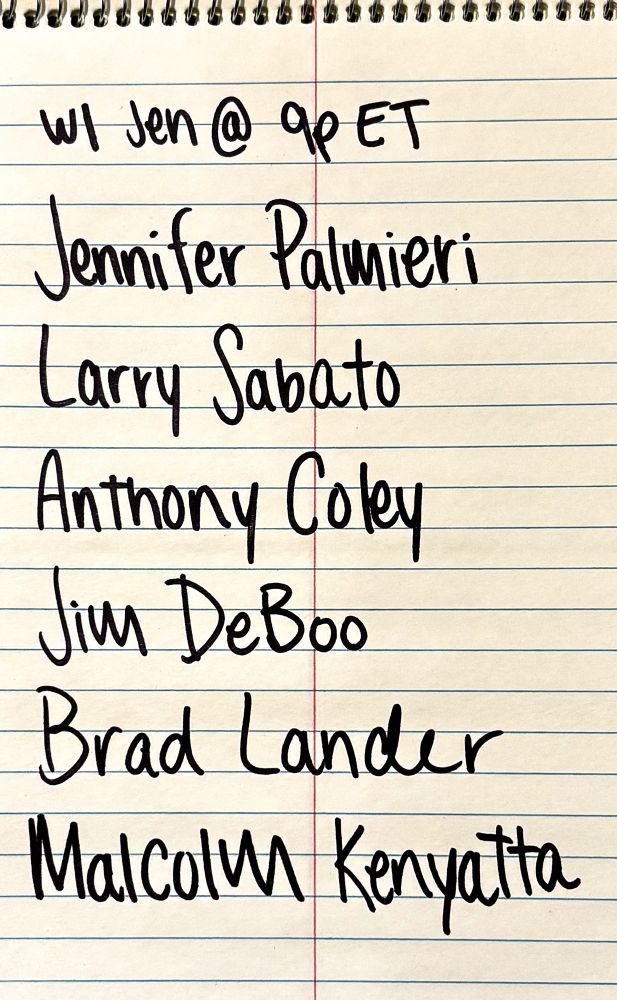 w/ Jen @ 9p ET
Jennifer Palmieri
Larry Sabato
Anthony Coley
Jim DeBoo
Brad Lander
Malcolm Kenyatta